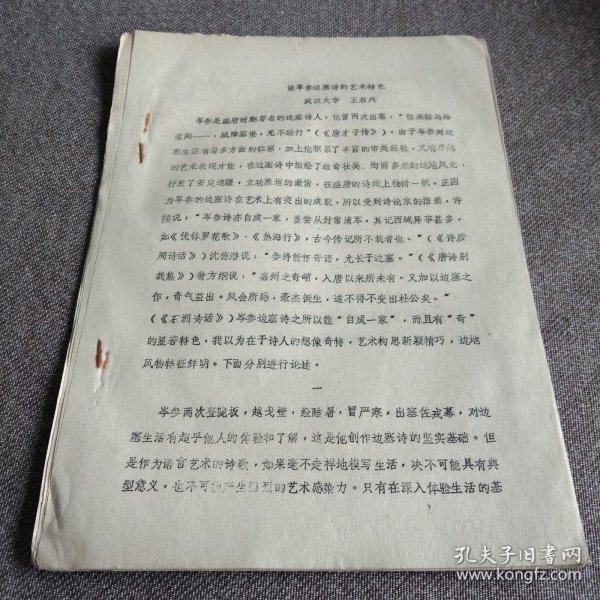 论岑参边塞诗的艺术特色
武汉大学 王启兴
岑参是盛唐时期著名的边塞诗人，他曾两次出塞，“往来鞍马烽
尘间……，城障塞堡，无不经行”（《唐才子传》）。由于岑参对边
塞生活有着多方面的体察，加上他积累了丰富的审美经验，又有卓越
的艺术表现才能，在边塞诗中描绘了雄奇壮美、绚丽多采的边地风光，
抒发了安定边疆，立功塞垣的豪情，在盛唐的诗坛上独树一帜。正因
为岑参的边塞诗在艺术上有突出的成就，所以受到诗论家的推崇，许
顗说，“岑参诗亦自成一家，盖尝从封常清军，其记西域异事甚多，
如《优钵罗花歌》、《热海行》，古今传记所不载者也。”（《许彦
周诗话》）沈德潜说：“参诗能作奇语，尤长于边塞。”（《唐诗别
裁集》）翁方纲说：“嘉州之奇峭，入唐以来所未有。又加以边塞之
作，奇气益出。风会所感，豪杰挺生，遂不得不变出杜公矣。”
（《石洲诗话》）岑参边塞诗之所以能“自成一家”，而且有“奇”
的显著特色，我以为在于诗人的想像奇特，艺术构思新颖精巧，边地
风物特征鲜明。下面分别进行论述。
一
岑参两次登陇坂，越戈壁，经酷暑，冒严寒，出塞佐戎幕，对边
塞生活有超乎他人的体验和了解，这是他创作边塞诗的坚实基础。但
是作为语言艺术的诗歌，如果毫不走样地模写生活，决不可能具有典
型意义，也不可能产生强烈的艺术感染力。只有在深入体验生活的基
孔夫子旧书网
www.kongfz.com